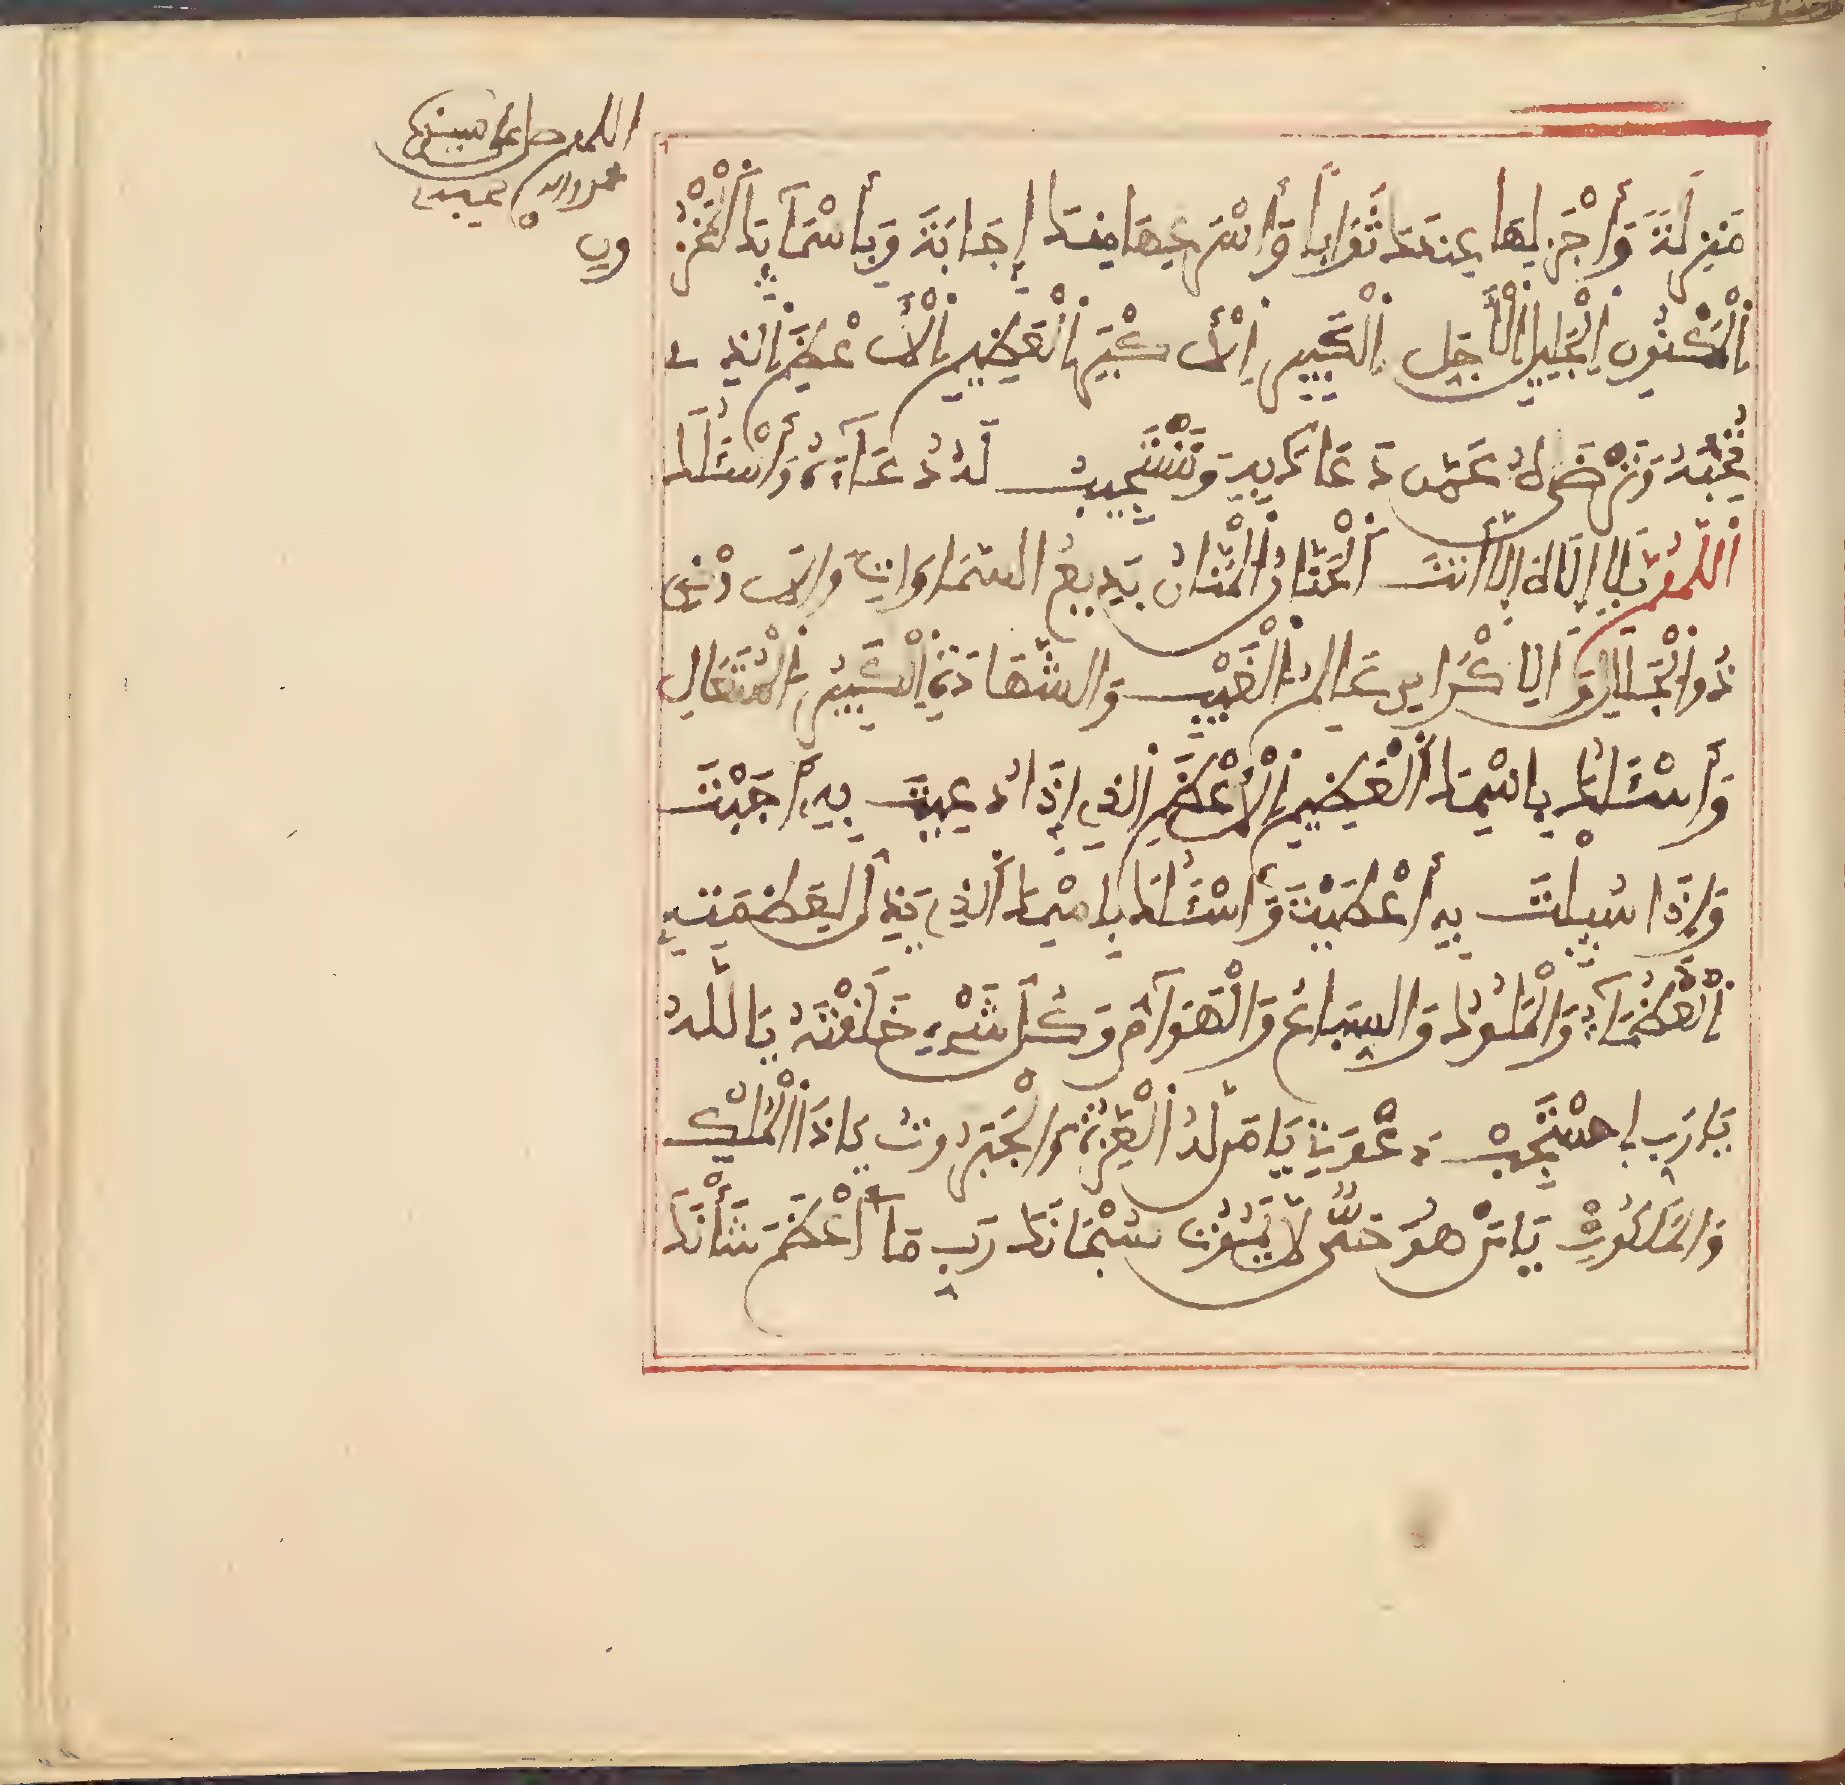 مَنزِلَةً وَأَجْزَلِهَا عِندَكَ ثَوَاباً وَأَسْرَعِهَا مِنكَ إِجَابَةً وَبِأَسْمَآئِكَ الْمَخْزُ
الْمَكْنُونِ الْجَلِيلِ الْأَجَلِّ الْكَبِيرِ الْأَكْبَرِ الْعَظِيمِ الْأَعْظَمِ الذِي
تُحِبُّهُ وَتَرْضَى عَمَّن دَعَاكَ بِهِ وَتَسْتَجِيبُ لَهُ دُعَآءَهُ وَأَسْئَلُكَ
اللَّهُمَّ بِلَا إِلَهَ إِلَّا أَنتَ الْحَنَّانُ الْمَنَّانُ بَدِيعُ السَّمَاوَاتِ وَالْأَرْضِ
ذُو الْجَلَالِ وَالْإِكْرَامِ عَالِمُ الْغَيْبِ وَالشَّهَادَةِ الْكَبِيرُ الْمُتَعَالِ
وَأَسْئَلُكَ بِاسْمِكَ الْعَظِيمِ الْأَعْظَمِ الذِي إِذَا دُعِيتَ بِهِ أَجَبْتَ
وَإِذَا سُئِلْتَ بِهِ أَعْطَيْتَ وَأَسْئَلُكَ بِاسْمِكَ الذِي يَذِلُّ لِعَظَمَتِهِ
الْعُظَمَآءُ وَالْمُلُوكُ وَالسِّبَاعُ وَالْهَوَآمُّ وَكُلُّ شَيْءٍ خَلَقْتَهُ يَا اللَّهُ
يَا رَبِّ اسْتَجِبْ دَعْوَتِي يَا مَن لَّهُ الْعِزَّةُ وَالْجَبَرُوتُ يَا ذَا الْمُلْكِ
وَالْمَلَكُوتِ يَا مَنْ هُوَ حَيٌّ لَّا يَمُوتُ سُبْحَانَكَ رَبِّ مَآ أَعْظَمَ شَأْنَكَ
اللهم صل على سيدنا
محمد وآله
ون